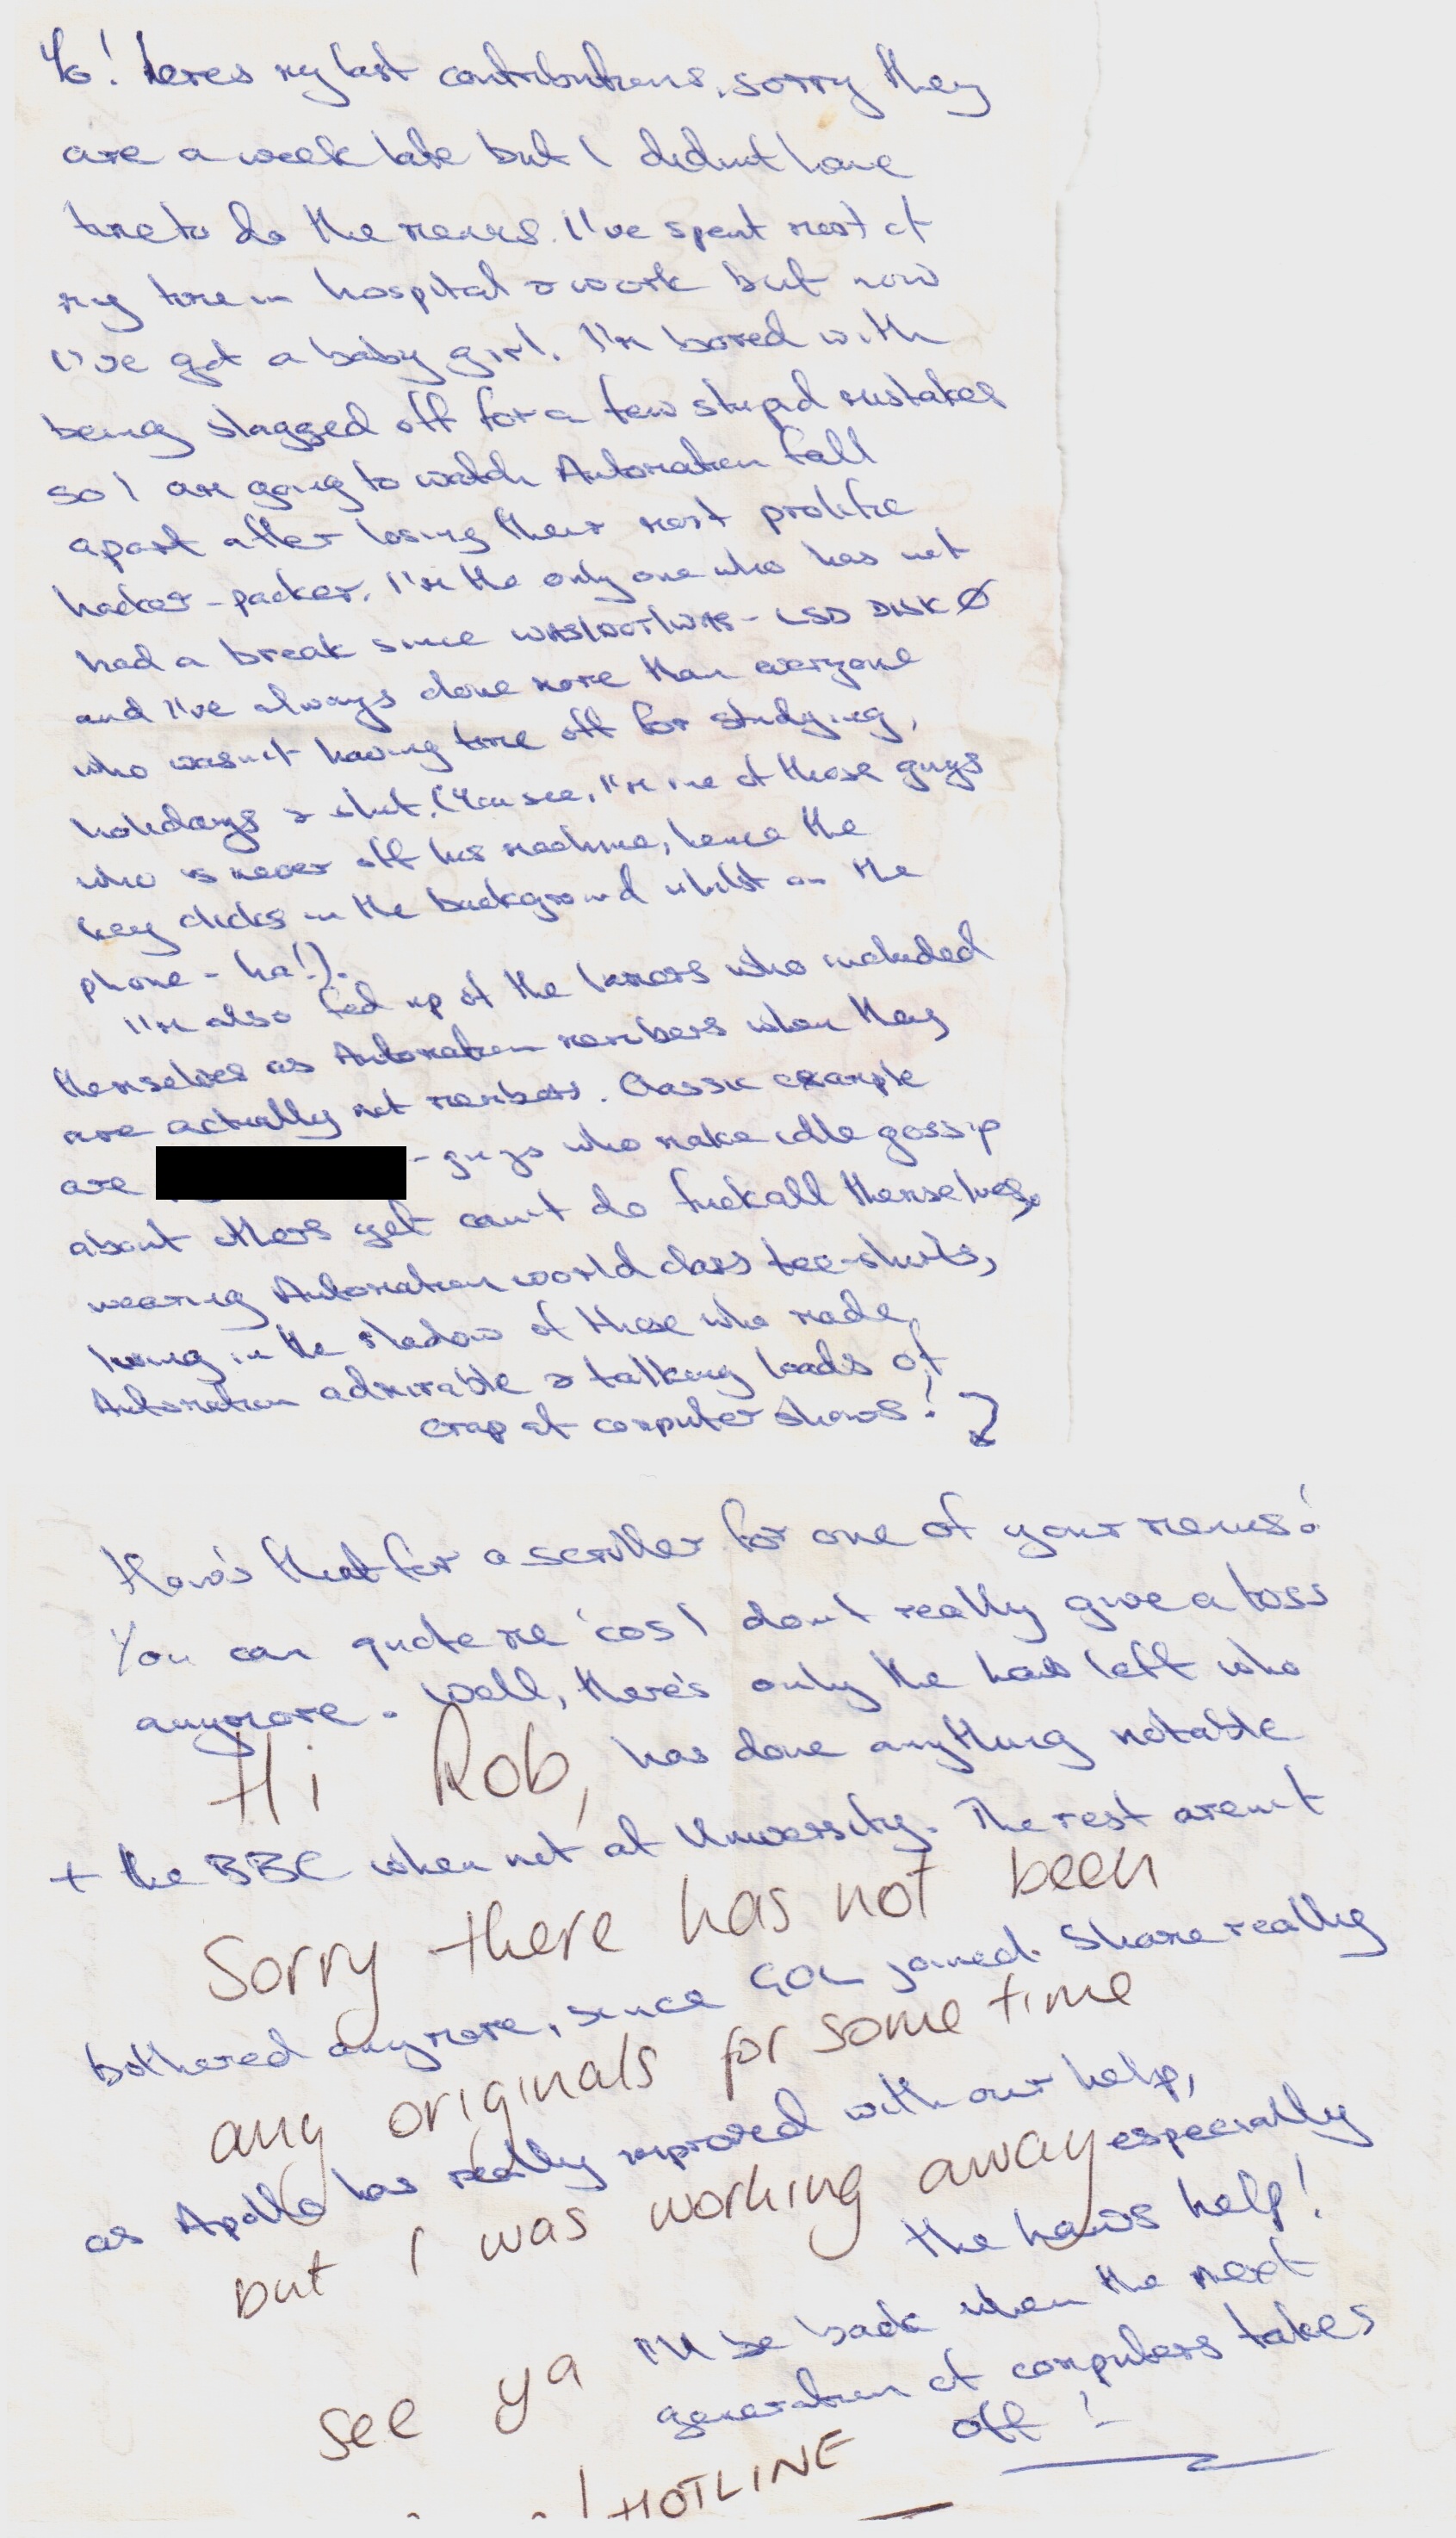 Yo! heres my last contributions, sorry they
are a week late but I didnt have
time to do the menus. I've spent most of
my time in hospital & work but now
I've got a baby girl. I'm bored with
being slagged off for a few stupid mistakes
so I am going to watch Automation fall
apart after losing their most prolific
hacker-packer. I'm the only one who has not
had a break since was/not/was - LSD DISK Ø
and I've always done more than everyone
who wasn't having time off for studying,
holidays & shit. (You see, I'm one of those guys
who is never off his machine, hence the
key clicks in the background whilst on the
phone - ha!).
I'm also fed up of the lamers who included
themselves as Automation members when they
are actually not members. Classic example
are - guys who make idle gossip
about others yet can't do fuck all themselves,
wearing Automation world class tee-shirts,
living in the shadow of those who made
Automation admirable & talking loads of
crap at computer shows!
How's that for a scroller for one of your menus!
You can quote me 'cos I don't really give a toss
anymore. Well, there's only the left who
has done anything notable
+ the BBC when not at University. The rest aren't
bothered anymore, since GOL joined. Shame really
as Apollo has really improved with our help,
especially
the help!
I'll be back when the next
generation of computers takes
off!
Hi Rob,
Sorry there has not been
any originals for some time
but I was working away
see ya
! HOTLINE